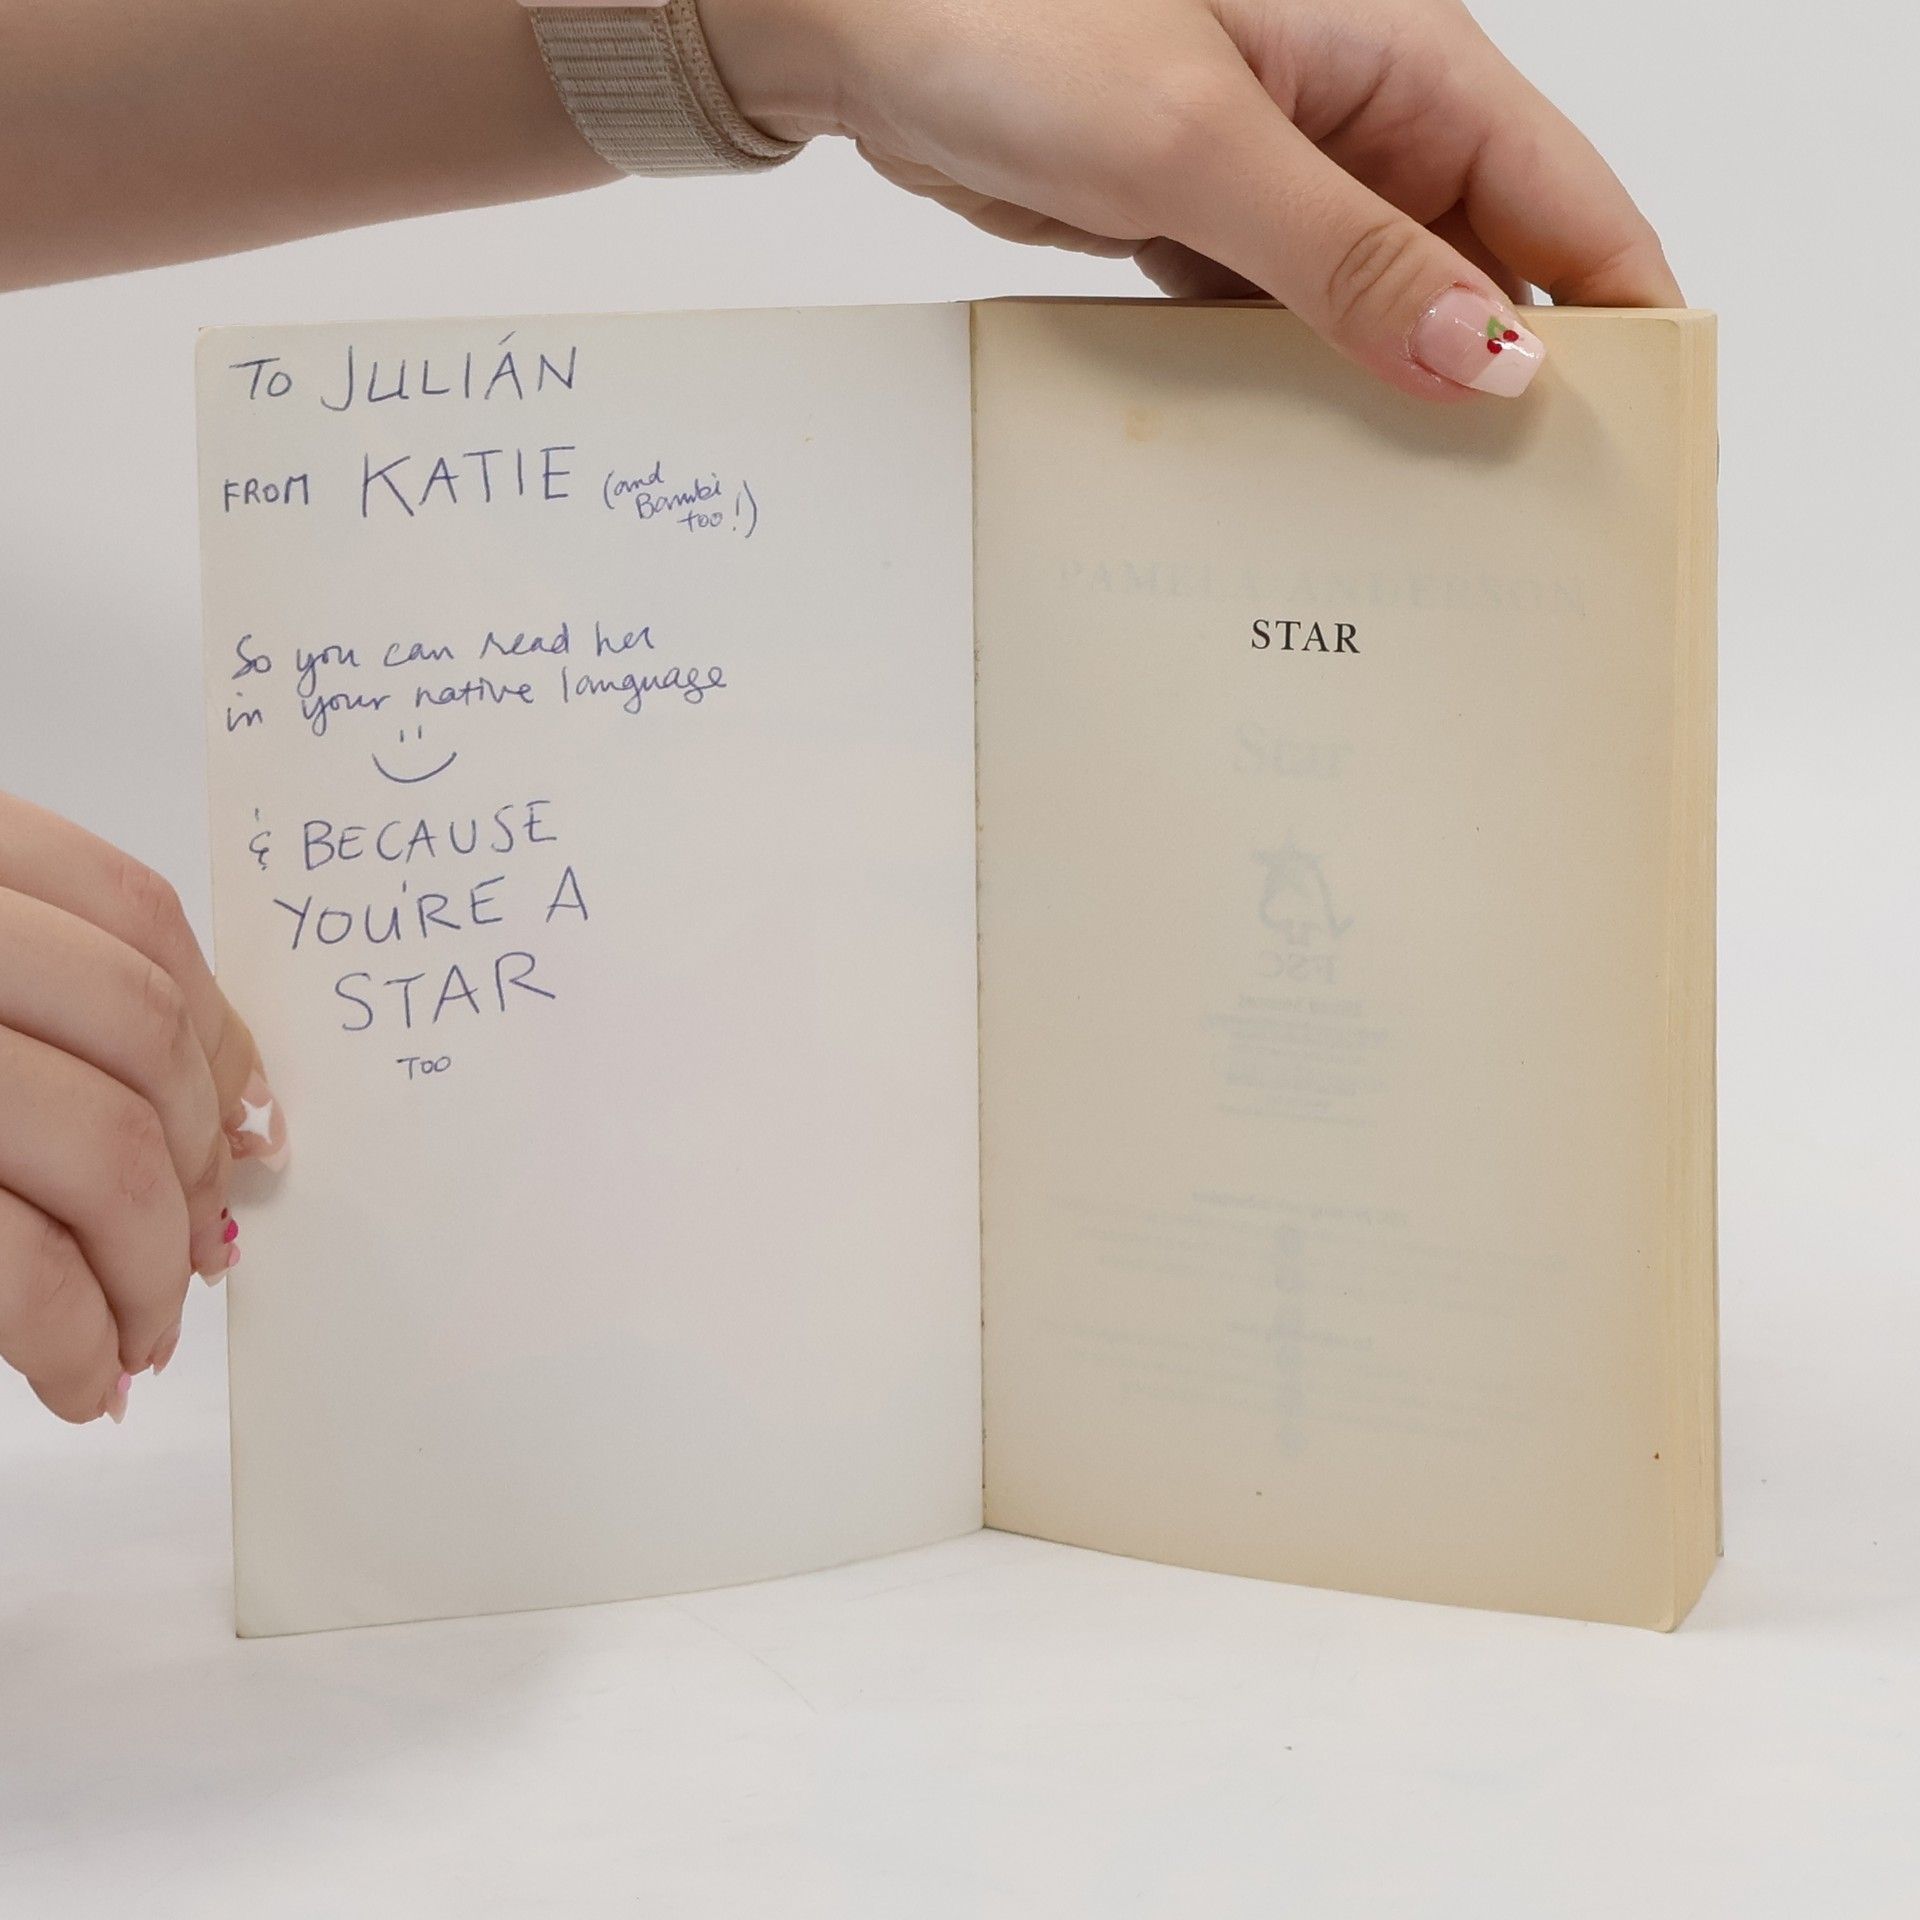 TO JULIÁN
FROM KATIE (and
Bambi
too!)
So you can read her
in your native language
& BECAUSE
YOU'RE A
STAR
TOO
STAR
PAMELA ANDERSON
Star
FSC